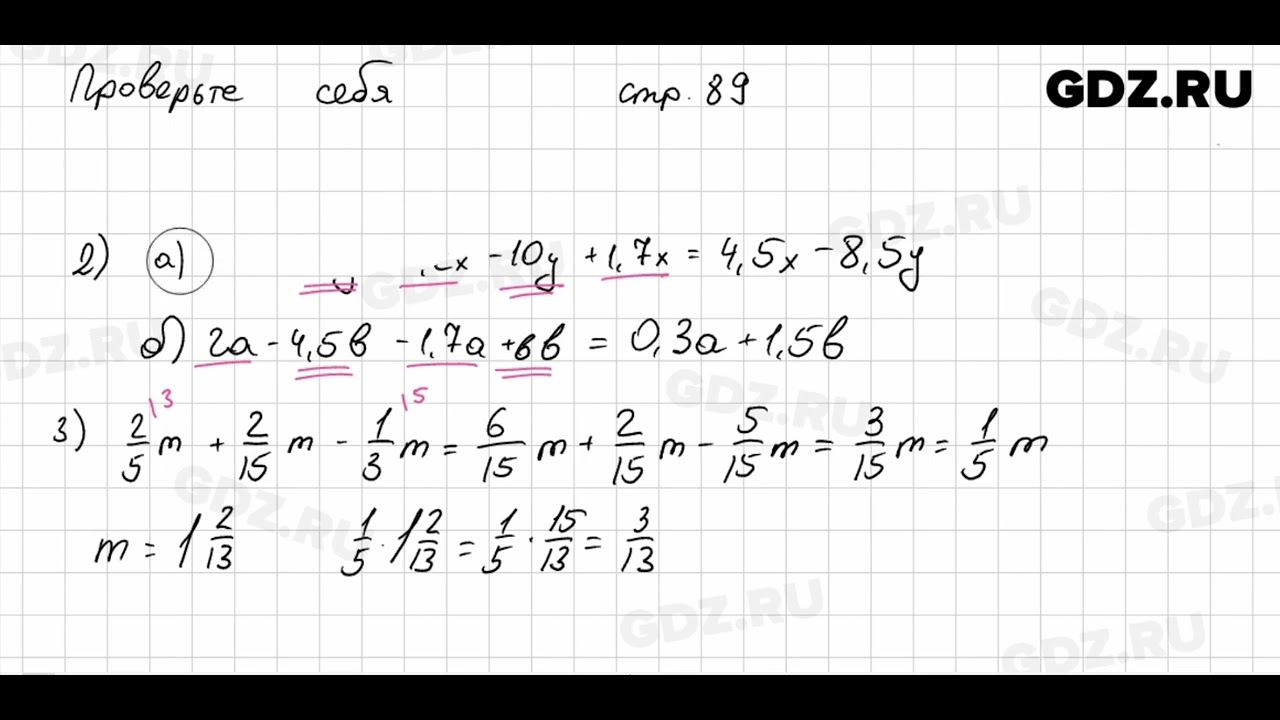 Проверьте себя стр. 89
GDZ.RU
2) а) x - 10y + 1,7x = 4,5x - 8,5y
б) 2a - 4,5b - 1,7a + 6b = 0,3a + 1,5b
3) 2/5 m + 2/15 m - 1/3 m = 6/15 m + 2/15 m - 5/15 m = 3/15 m = 1/5 m
m = 1 2/13 1/5 · 1 2/13 = 1/5 · 15/13 = 3/13